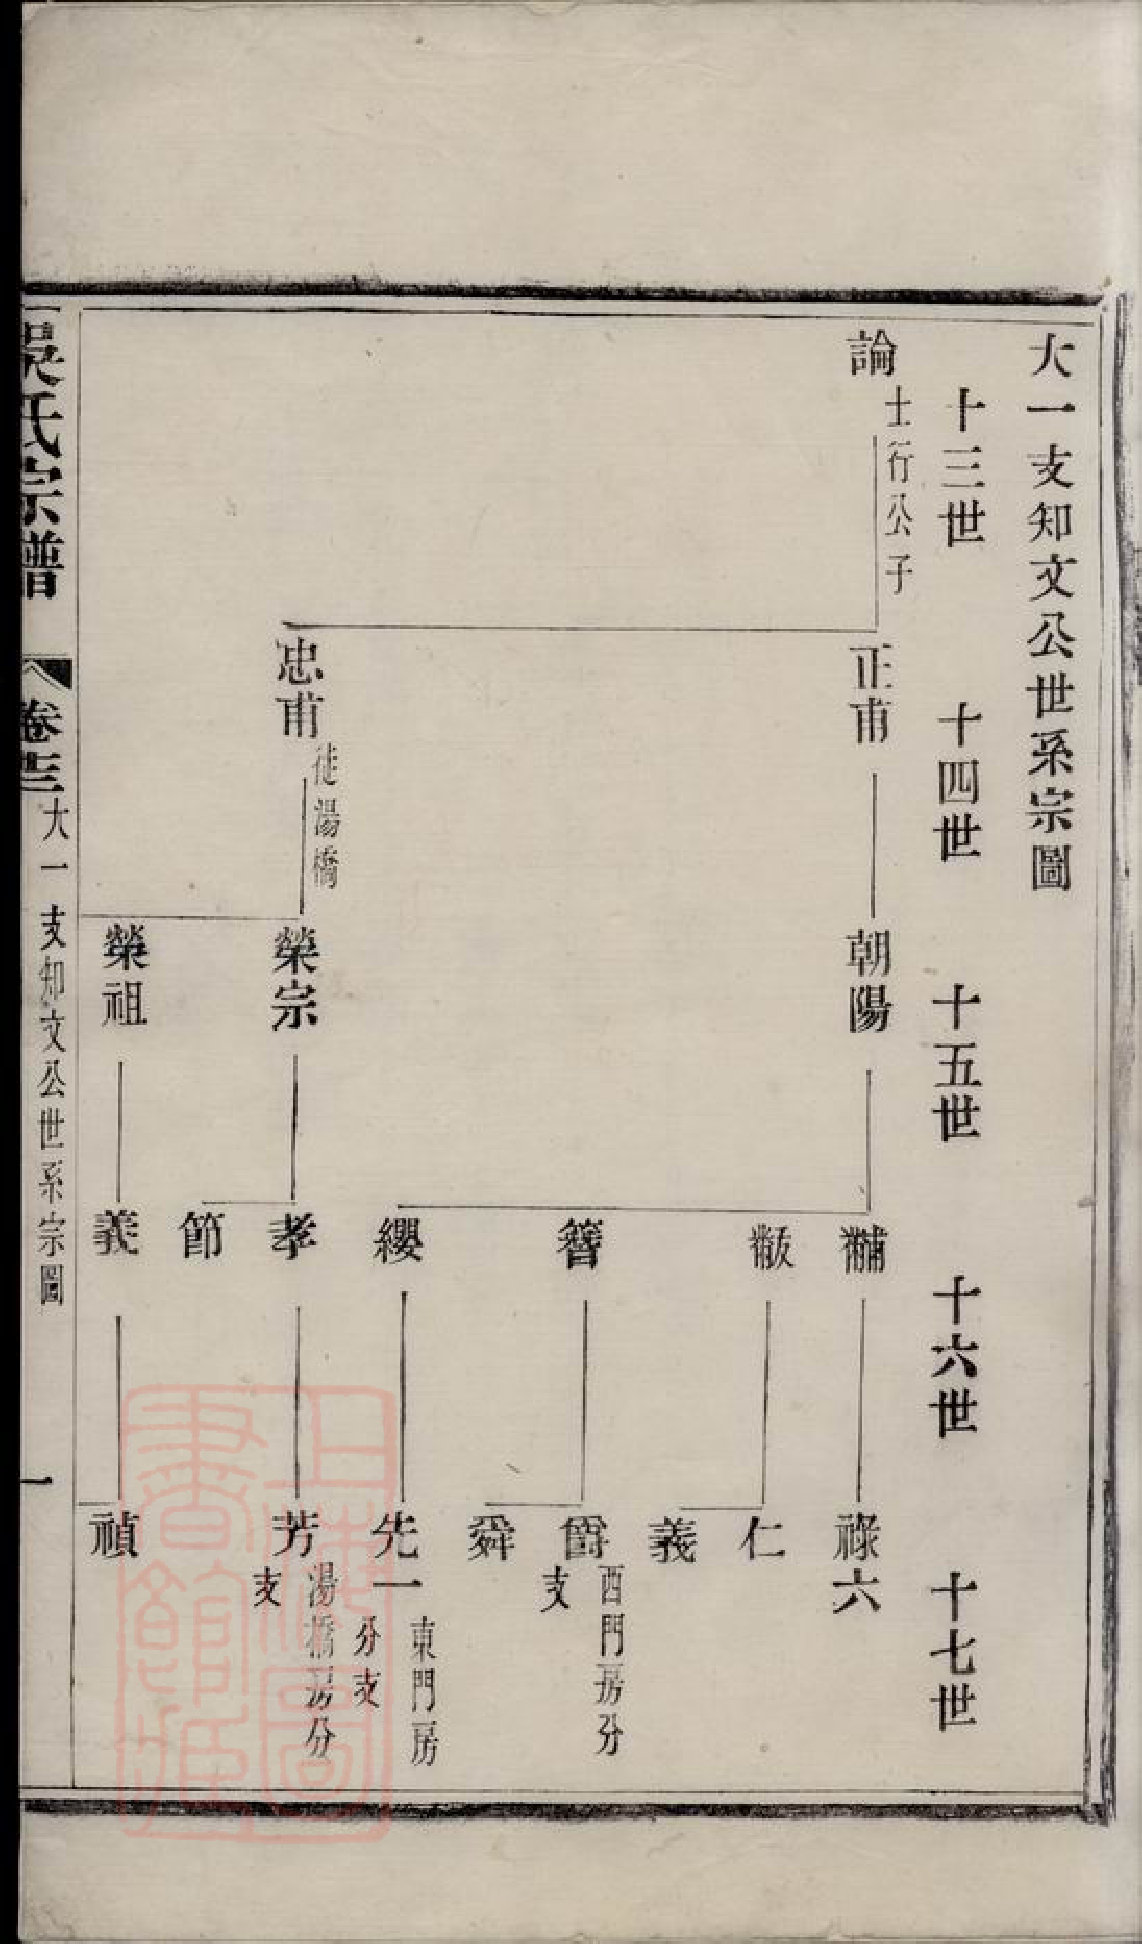 大一支知文公世系宗圖
十三世
十四世
十五世
十六世
十七世
論
士行公子
正甫
朝陽
黼
祿六
黻
仁
義
簪
爵
西門房分
支
舜
纓
先一
東門房
分支
忠甫
徙湯橋
榮宗
孝
芳
湯橋房分
支
節
榮祖
義
禎
吳氏宗譜
卷
大一支知文公世系宗圖
一